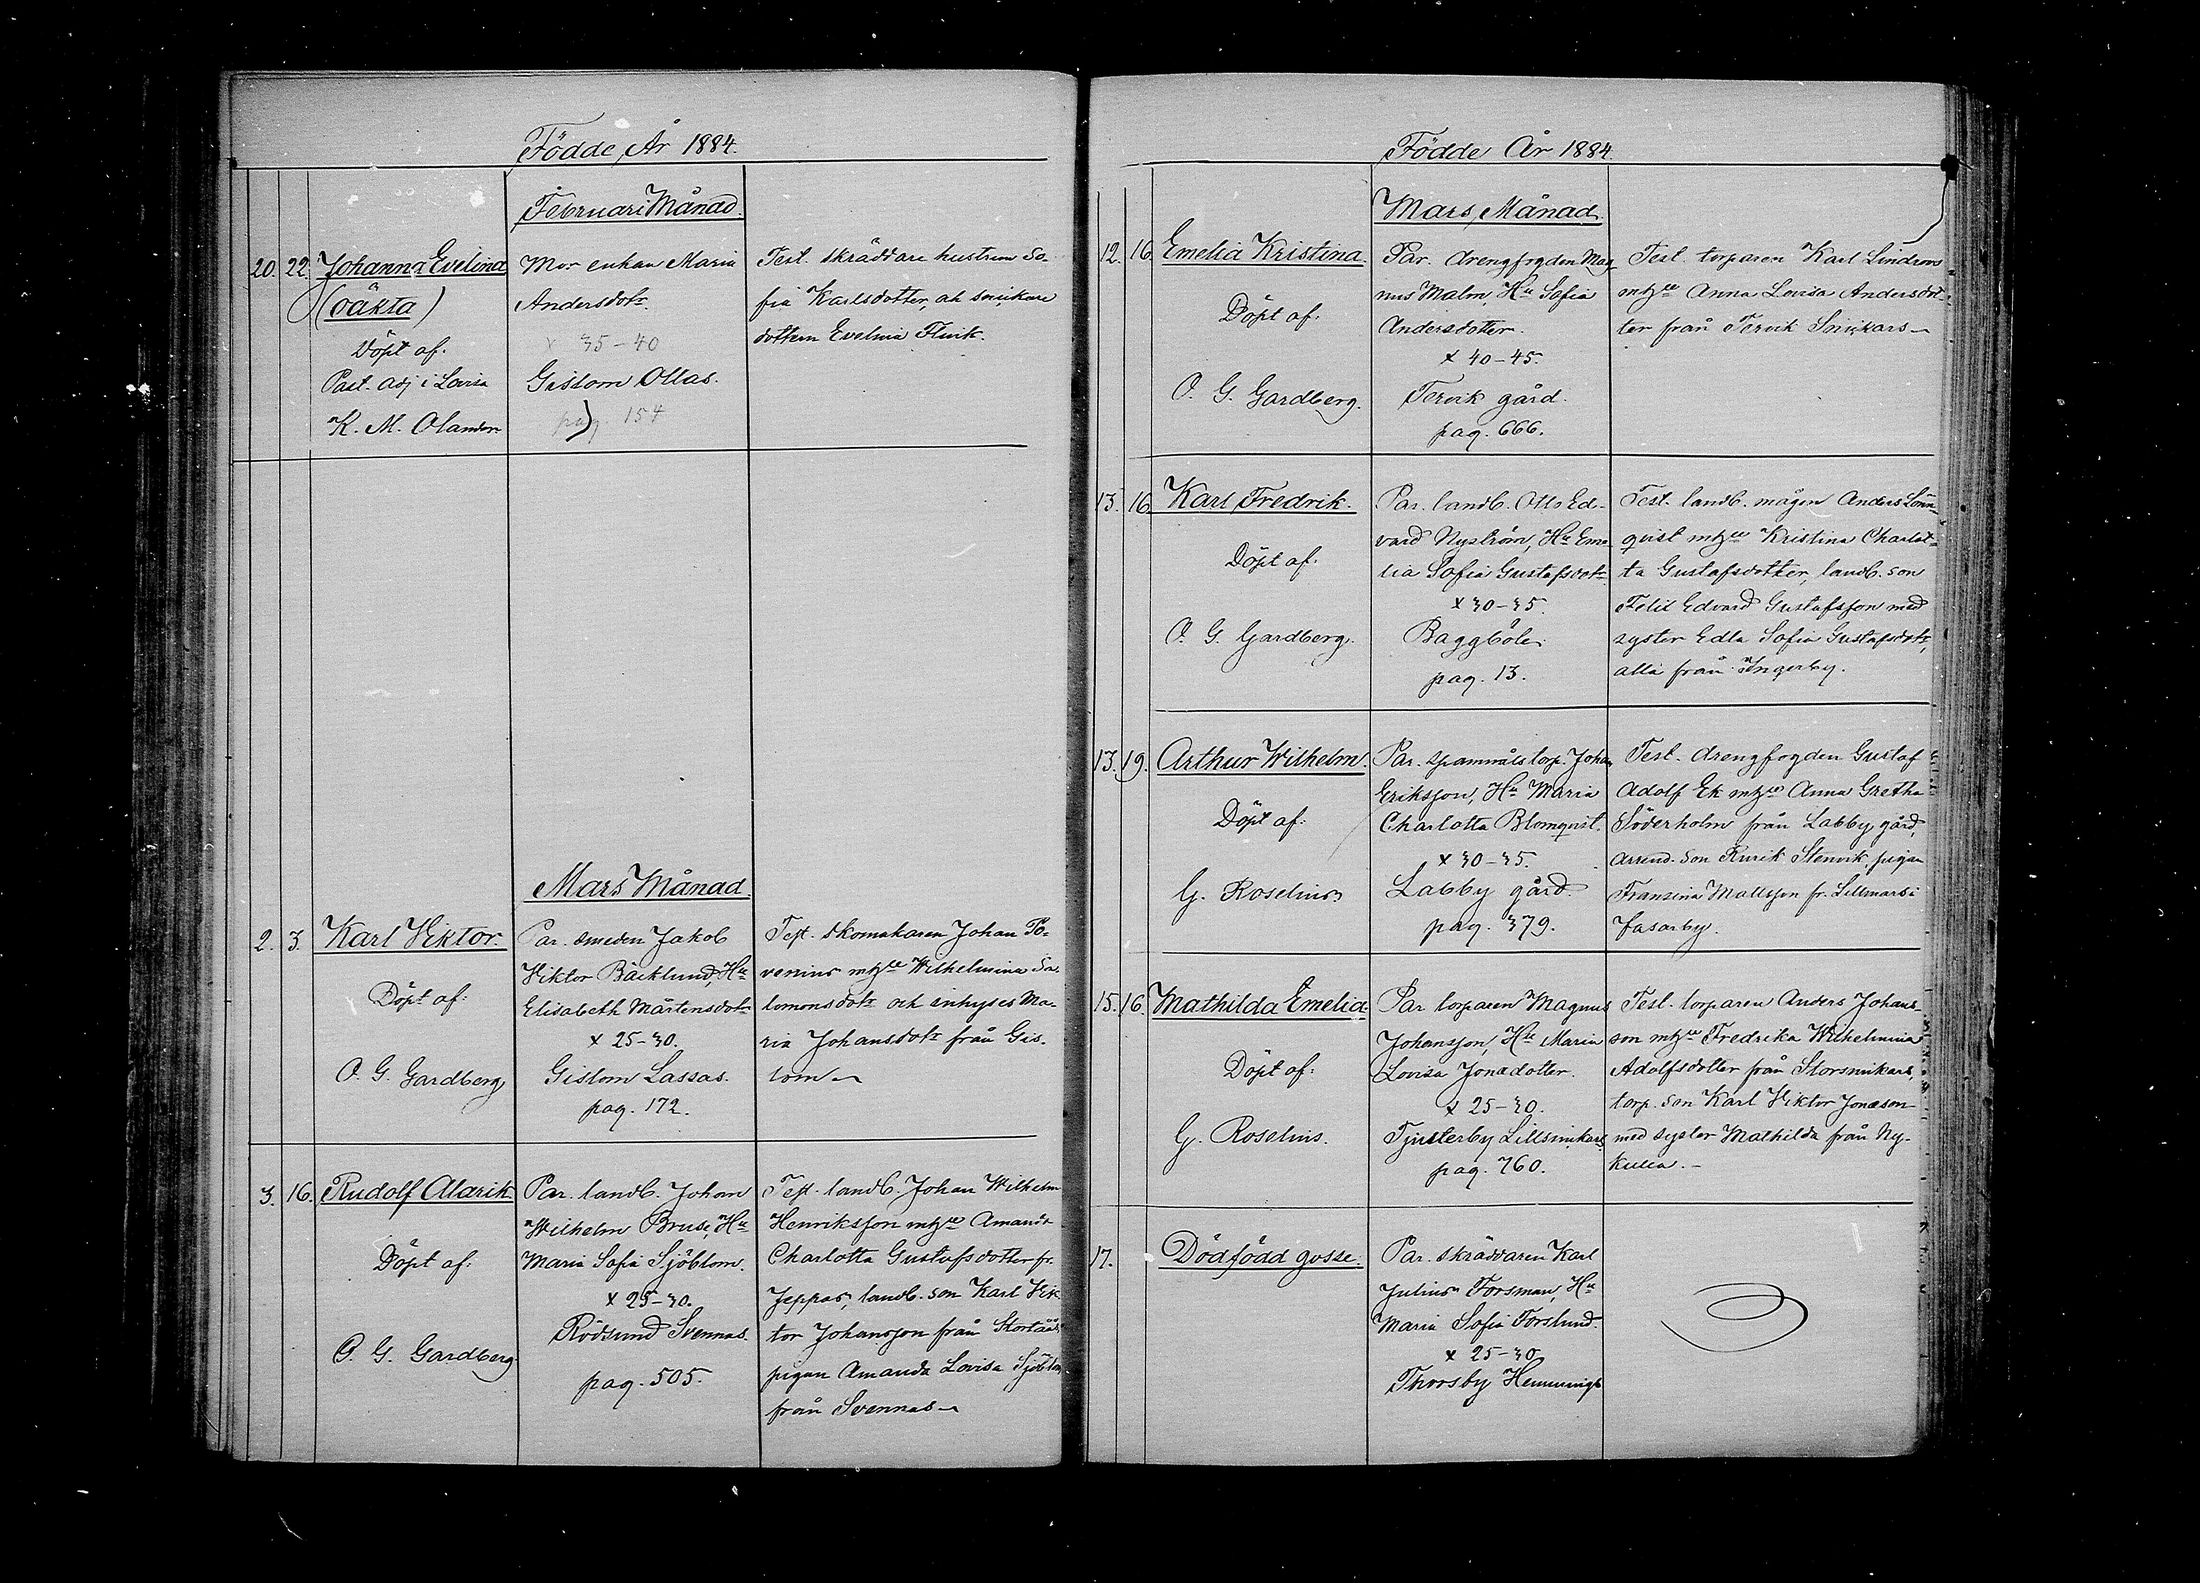 Födde År 1884.
Februari Månad.
20. 22. Johanna Evelina
(oäkta)
Döpt af.
Past. adj i Lovisa
K. M. Olander
Mor enkan Maria
Andersdotr
x 35-40
Gislom Ollas.
pag. 154
Test. skräddare hustrun So-
fia Karlsdotter, ach snickare
dottern Evelina Flink.
Mars Månad
2. 3. Karl Viktor.
Döpt af:
O. G. Gardberg
Par. smeden Jakob
Viktor Bäcklund, Hu
Elisabeth Mårtensdotr
x 25-30.
Gislom Lassas.
pag. 172.
Test. skomakaren Johan Po-
venius mtzee Wilhelmina Sa-
lomonsdotr och inhyses Ma-
ria Johansdotr från Gis-
lom
3. 16. Rudolf Alarik
Döpt af:
O. G. Gardberg
Par. landb. Johan
Wilhelm Bruse, Hu
Maria Sofia Sjöblom.
x 25-30.
Rödsund Svennas.
pag. 505.
Test. landb. Johan Wilhelm
Henriksson mtzee Amanda
Charlotta Gustafsdotter fr.
Jeppas, landb. son Karl Vik
tor Johansson från
pigan Amanda Lovisa Sjöblom
från Svennas
Födde År 1884.
Mars Månad.
12. 16. Emelia Kristina.
Döpt af:
O. G. Gardberg.
Par. drengfogden Mag
nus Malm, Hu Sofia
Andersdotter.
x 40-45.
Tervik gård.
pag. 666.
Test. torparen Karl Lindroos
mtzee Anna Lovisa Andersdot
ter från Tervik Snickars
13. 16. Karl Fredrik.
Döpt af:
O. G. Gardberg.
Par. landb. Otto Ed-
vard Nyström, Hu Eme
lia Sofia Gustafsdotr
x 30-35.
Baggböle.
pag. 13.
Test. landb. mågen Anders Lönn-
quist mtzee Kristina Charlot-
ta Gustafsdotter, landb. son
Felix Edvard Gustafsson med
syster Edla Sofia Gustafsdotr,
alla från Ingerby.
13. 19. Arthur Wilhelm.
Döpt af:
G. Roselius
Par. spanmålstorp. Johan
Eriksson, Hu Maria
Charlotta Blomqvist.
x 30-35.
Labby gård
pag. 379.
Test. drengfogden Gustaf
Adolf Ek mtzee Anna Gretha
Söderholm från Labby gård,
arrend. son Rurik Stenvik, pigan
Fransina Mattsson fr. Lillmars i
Fasarby.
15. 16. Mathilda Emelia
Döpt af:
G. Roselius.
Par torparen Magnus
Johansson, Hu Maria
Lovisa Jonasdotter.
x 25-30.
Tjusterby Lillsnickars
pag. 760.
Test. torparen Anders Johans-
son mtzee Fredrika Wilhelmina
Adolfsdotter från Storsnickars,
torp. son Karl Viktor Jonasson
med syster Mathilda från Ny-
kulla.
17. Dödfödd gosse.
Par. skräddaren Karl
Julius Forsman, Hu
Maria Sofia Forslund.
x 25-30
Thorsby Hemmings